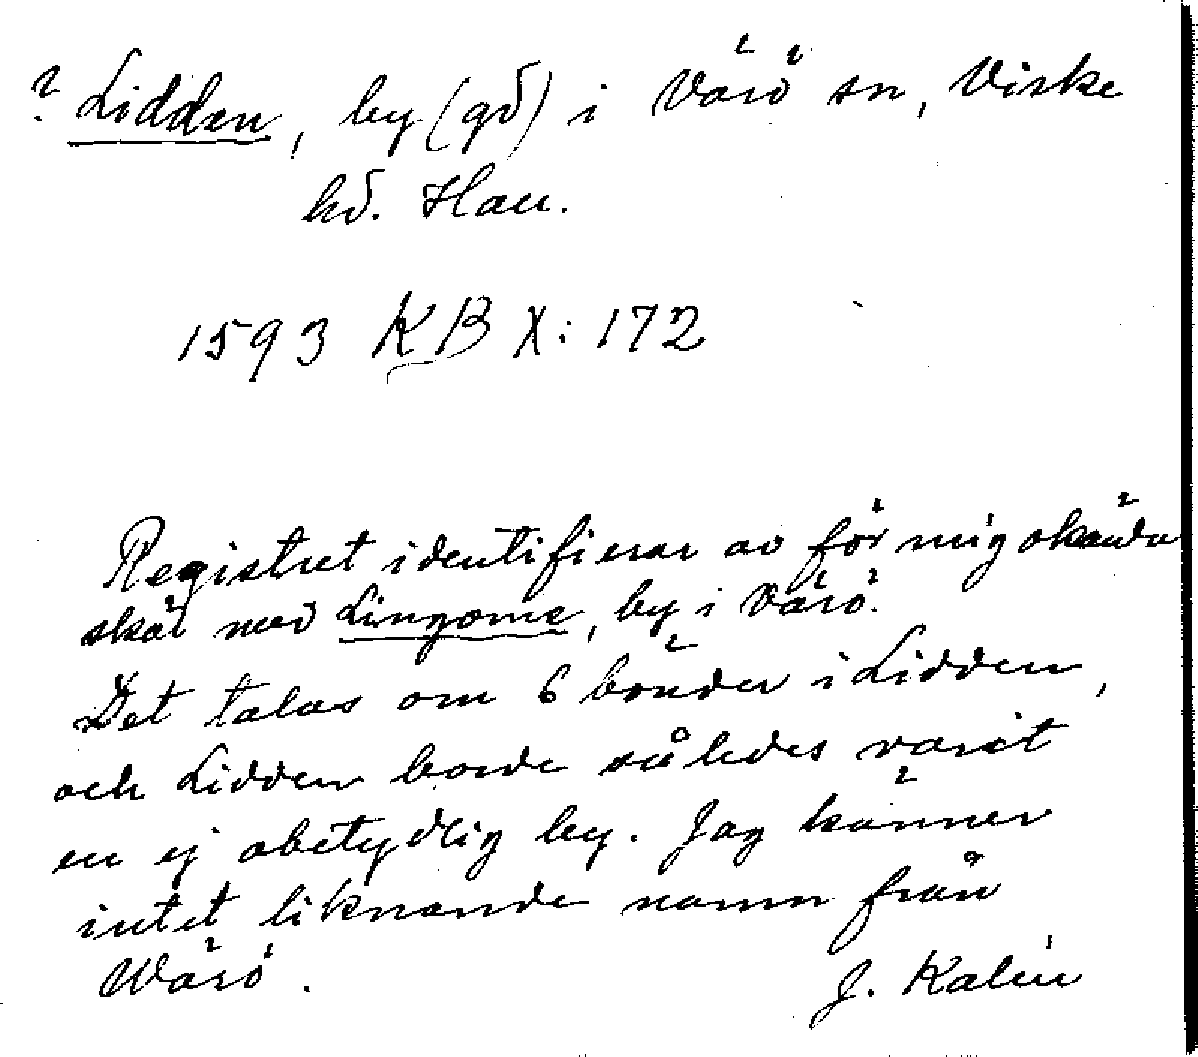 ? Lidden, by (gd) i Värö sn, Viske
hd. Hall.
1593 KB X: 172
Registret identifierar av för mig okända
skäl med Lingome, by i Värö.
Det talas om 6 bönder i Lidden,
och Lidden borde således varit
en ej obetydlig by. Jag känner
intet liknande namn från
Wärö.
J. Kalén